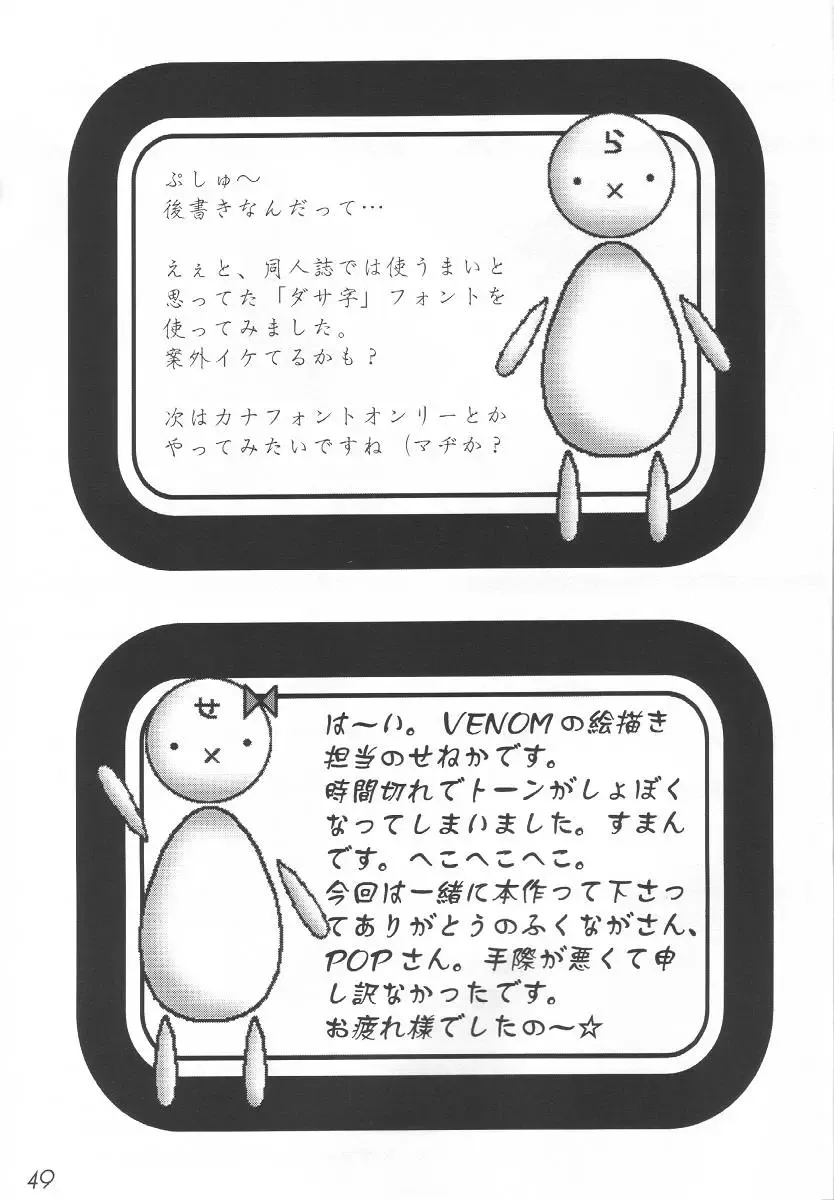 ら
ぷしゅ～
後書きなんだって…
えぇと、同人誌では使うまいと
思ってた「ダサ字」フォントを
使ってみました。
案外イケてるかも？
次はカナフォントオンリーとか
やってみたいですね（マヂか？
せ
は～い。VENOMの絵描き
担当のせねかです。
時間切れでトーンがしょぼく
なってしまいました。すまん
です。へこへこへこ。
今回は一緒に本作って下さっ
てありがとうのふくながさん、
POPさん。手際が悪くて申
し訳なかったです。
お疲れ様でしたの～☆
49